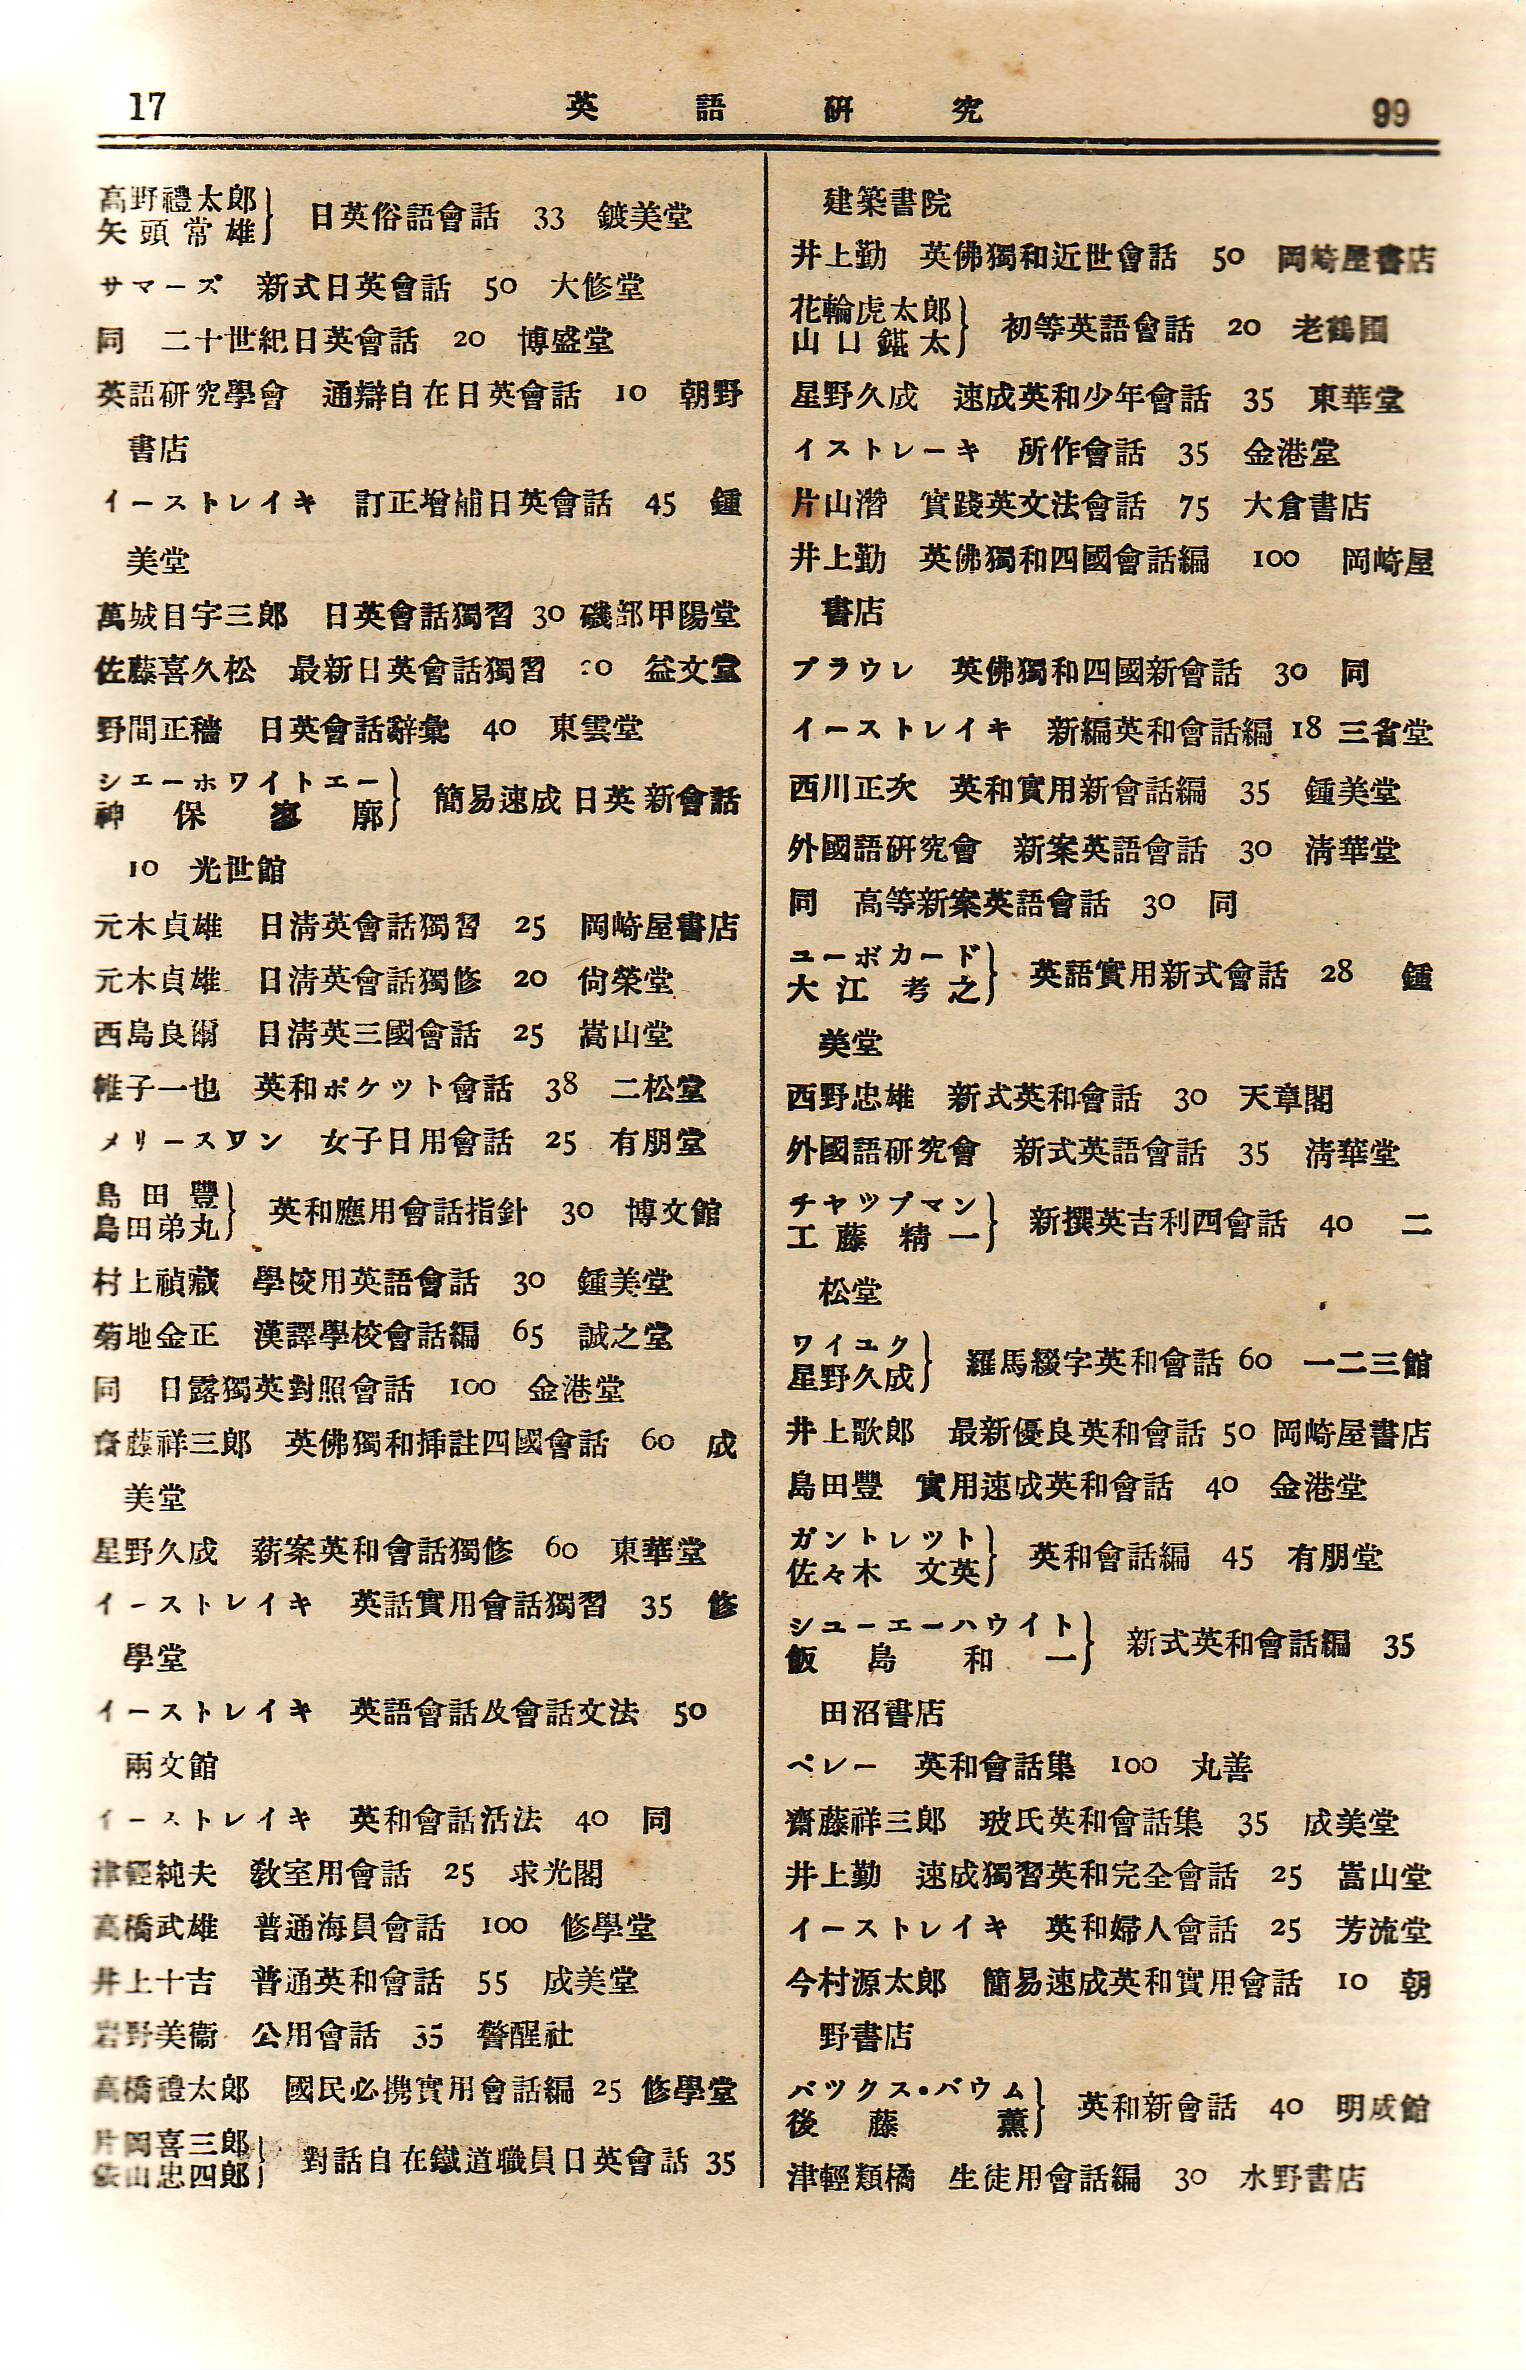 17 英語研究 99
高野禮太郎
矢頭常雄} 日英俗語會話 33 鍍美堂
サマーズ 新式日英會話 50 大修堂
同 二十世紀日英會話 20 博盛堂
英語研究學會 通辯自在日英會話 10 朝野
書店
イーストレイキ 訂正增補日英會話 45 鍾
美堂
萬城目字三郎 日英會話獨習 30 磯部甲陽堂
佐藤喜久松 最新日英會話獨習 益文堂
野間正穡 日英會話辭彙 40 東雲堂
シエーホワイトエー
神保寥廓} 簡易速成日英新會話
10 光世館
元木貞雄 日淸英會話獨習 25 岡崎屋書店
元木貞雄 日淸英會話獨修 20 尙榮堂
西島良爾 日淸英三國會話 25 嵩山堂
帷子一也 英和ポケット會話 38 二松堂
メリースワン 女子日用會話 25 有朋堂
島田豐
島田弟丸} 英和應用會話指針 30 博文館
村上禎藏 學校用英語會話 30 鍾美堂
菊地金正 漢譯學校會話編 65 誠之堂
同 日露獨英對照會話 100 金港堂
齋藤祥三郎 英佛獨和揷註四國會話 60 成
美堂
星野久成 薪案英和會話獨修 60 東華堂
イーストレイキ 英話實用會話獨習 35 修
學堂
イーストレイキ 英語會話及會話文法 50
兩文館
イーストレイキ 英和會話活法 40 同
津輕純夫 敎室用會話 25 求光閣
高橋武雄 普通海員會話 100 修學堂
井上十吉 普通英和會話 55 成美堂
岩野美衞 公用會話 35 警醒社
高橋禮太郎 國民必携實用會話編 25 修學堂
片岡喜三郎
依山忠四郎} 對話自在鐵道職員日英會話 35
建築書院
井上勤 英佛獨和近世會話 50 岡崎屋書店
花輪虎太郎
山口鐵太} 初等英語會話 20 老鶴圃
星野久成 速成英和少年會話 35 東華堂
イストレーキ 所作會話 35 金港堂
片山潛 實踐英文法會話 75 大倉書店
井上勤 英佛獨和四國會話編 100 岡崎屋
書店
ブラウレ 英佛獨和四國新會話 30 同
イーストレイキ 新編英和會話編 18 三省堂
西川正次 英和實用新會話編 35 鍾美堂
外國語硏究會 新案英語會話 30 淸華堂
同 高等新案英語會話 30 同
ユーボカード
大江考之} 英語實用新式會話 28 鍾
美堂
西野忠雄 新式英和會話 30 天章閣
外國語研究會 新式英語會話 35 淸華堂
チヤツプマン
工藤精一} 新撰英吉利西會話 40 二
松堂
ワイユク
星野久成} 羅馬綴字英和會話 60 一二三館
井上歌郎 最新優良英和會話 50 岡崎屋書店
島田豐 實用速成英和會話 40 金港堂
ガントレツト
佐々木文英} 英和會話編 45 有朋堂
シユーエーハウイト
飯島和一} 新式英和會話編 35
田沼書店
ペレー 英和會話集 100 丸善
齋藤祥三郎 玻氏英和會話集 35 成美堂
井上勤 速成獨習英和完全會話 25 嵩山堂
イーストレイキ 英和婦人會話 25 芳流堂
今村源太郎 簡易速成英和實用會話 10 朝
野書店
バツクス・バウム
後藤薫} 英和新會話 40 明成館
津輕類橘 生徒用會話編 30 水野書店